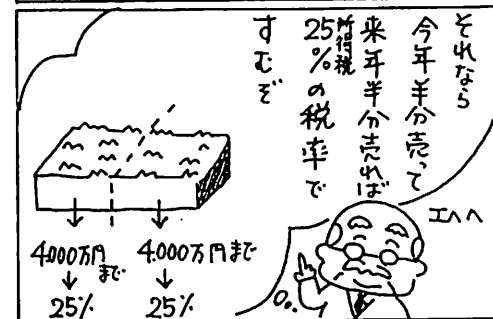 それなら
今年半分売って
来年半分売れば
所得税
25%の税率で
すむぞ
エヘヘ
4000万円まで
↓
25%
4000万円まで
↓
25%